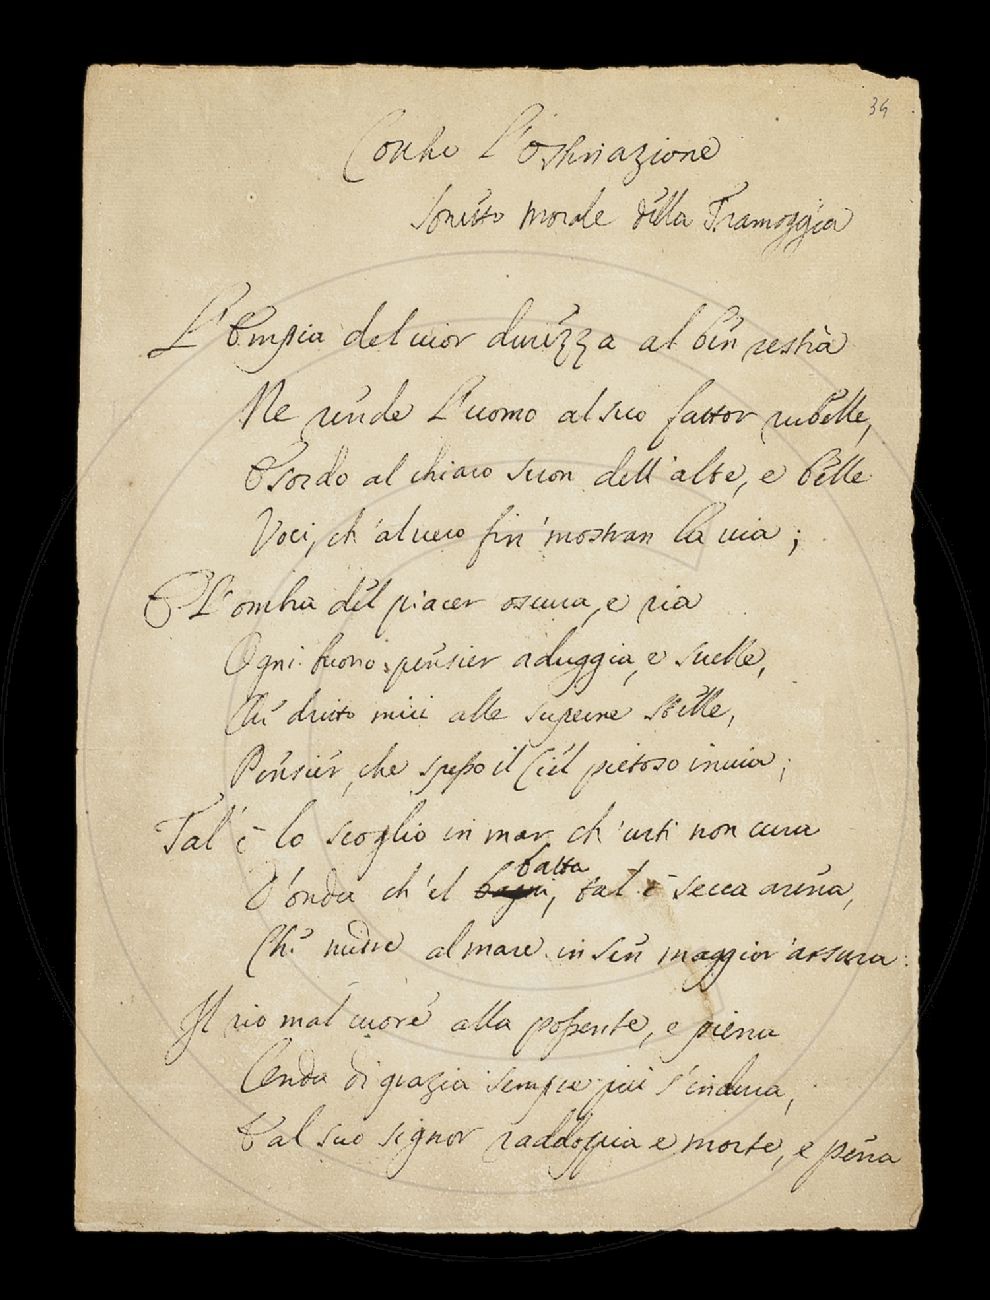 34
Contro L'ostinazione
Sonetto morale della Tramoggia
L'Empia del cuor durezza al ben restìa
Ne rende L'uomo al suo fattor rubelle,
E sordo al chiaro suon dell'alte, e belle
Voci, ch'al vero fin' mostran la via;
E L'ombra del piacer oscura, e ria
Ogni buono pensier aduggia, e svelle,
Che dritto miri alle superne stelle,
Pensier, che spesso il Ciel pietoso invia;
Tal' è lo scoglio in mar ch'urti non cura
D'onda ch'el batta, tal è secca arena,
Ch' nudre al mare in sen maggior arsura:
Il rio mal cuore alla possente, e piena
Onda di grazia sempre più s'indura;
E al suo signor raddoppia e morte, e pena